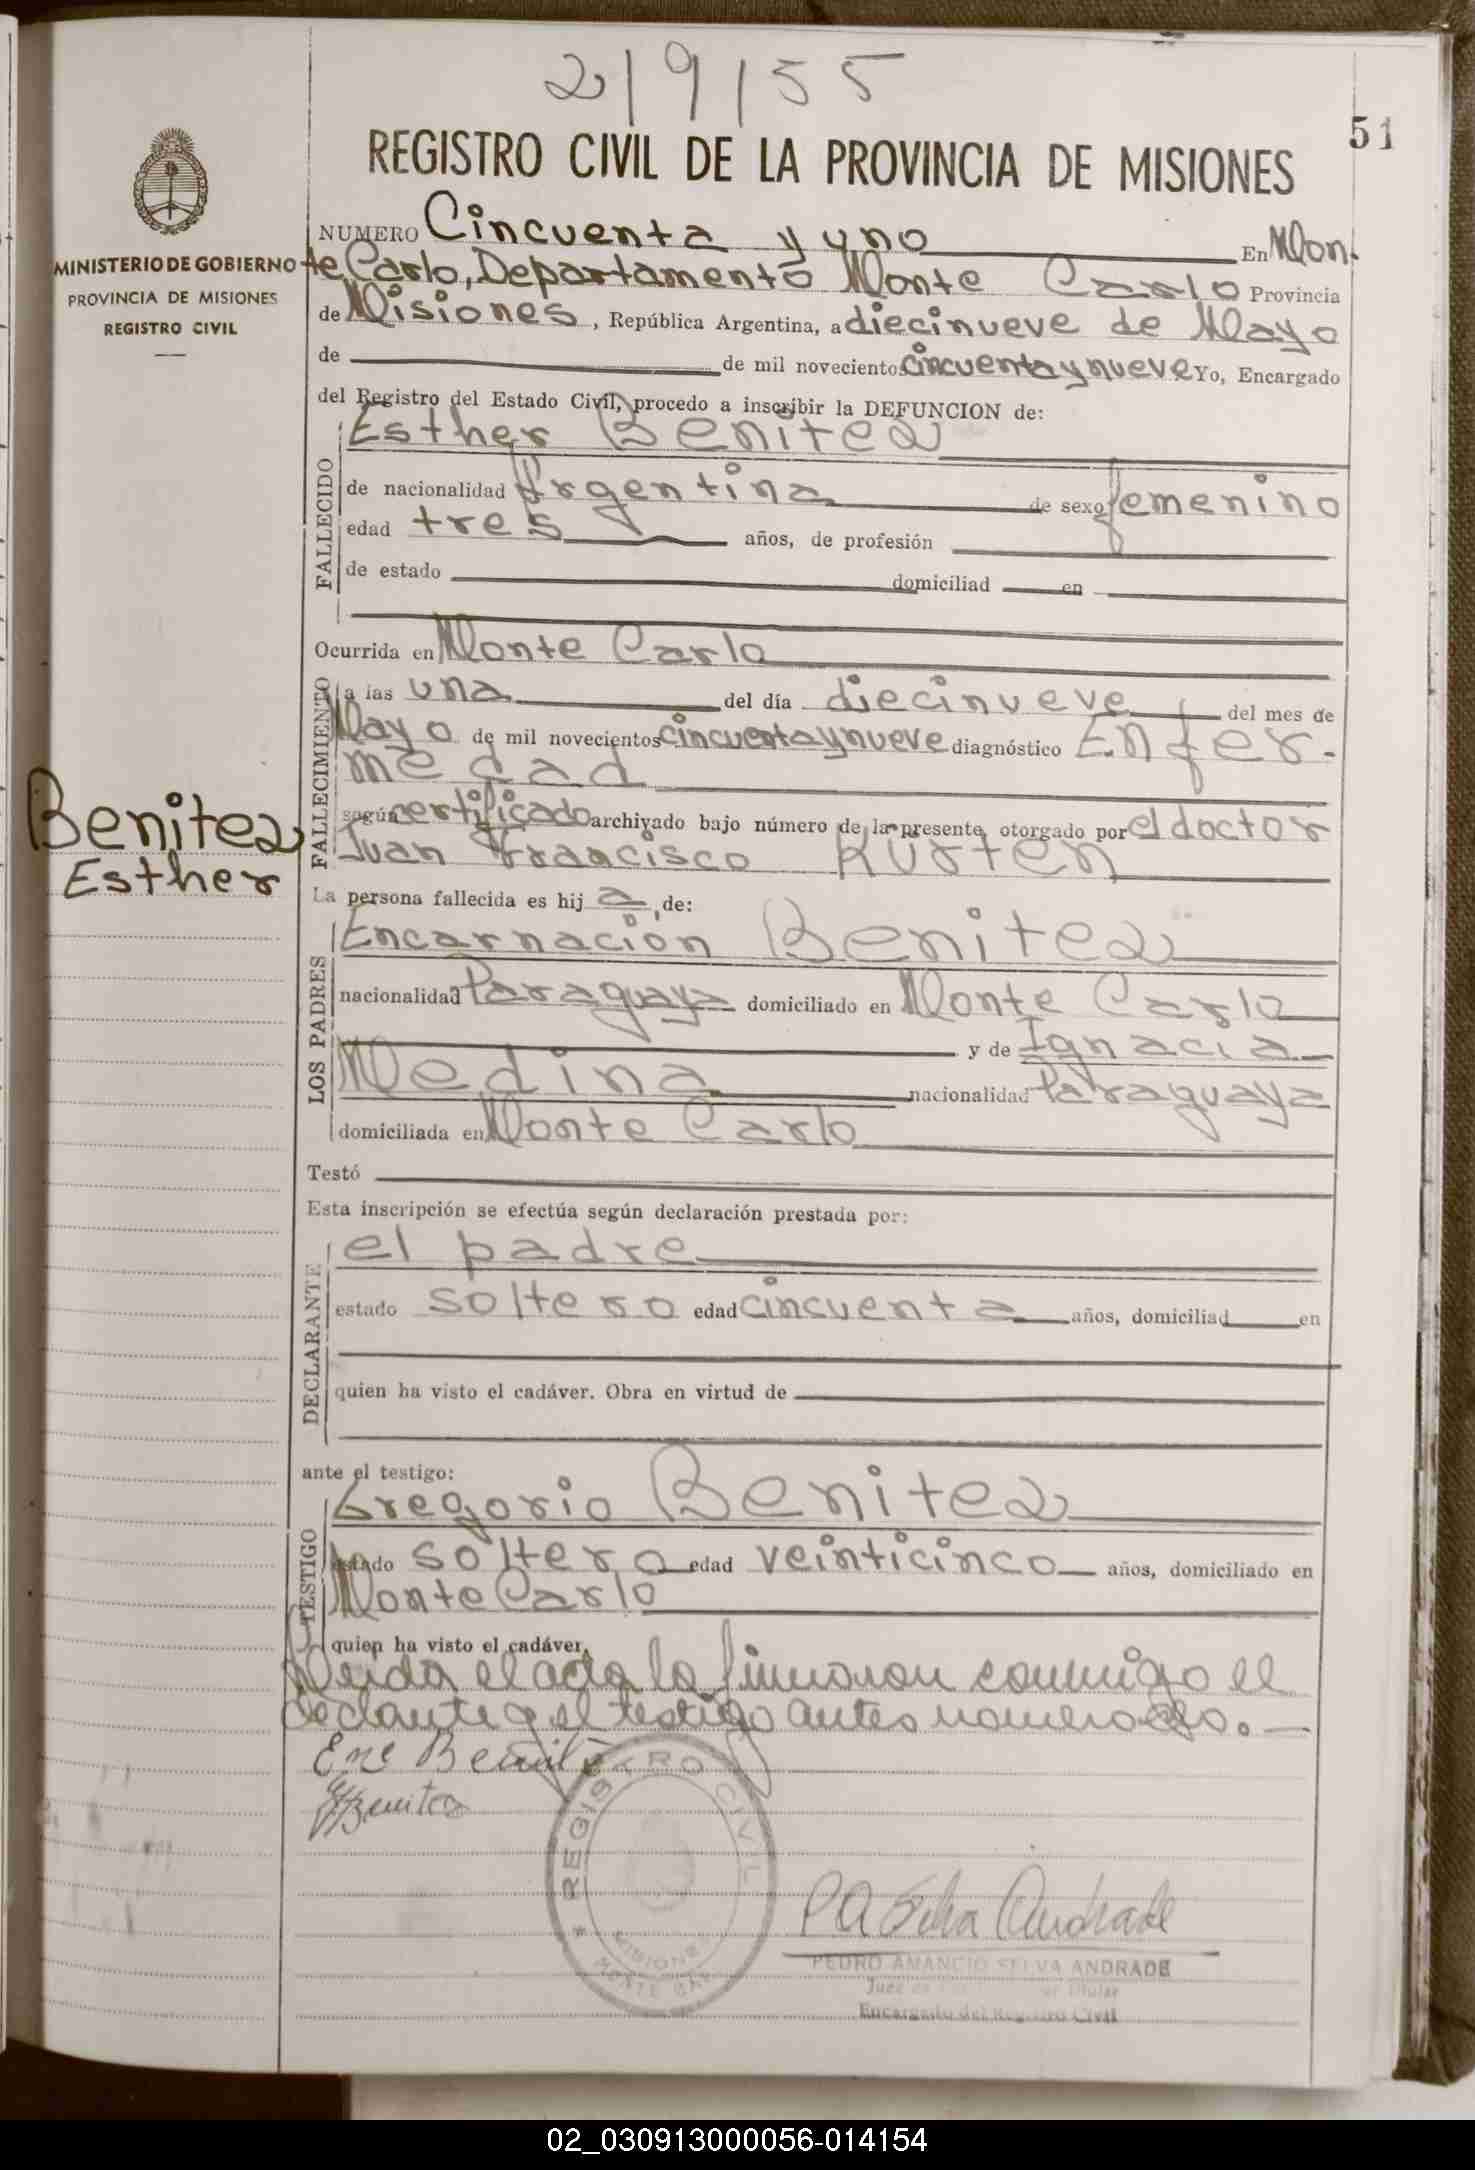 2/9/55
51
REGISTRO CIVIL DE LA PROVINCIA DE MISIONES
MINISTERIO DE GOBIERNO
PROVINCIA DE MISIONES
REGISTRO CIVIL
NUMERO Cincuenta y uno En Mon-
te Carlo, Departamento Monte Carlo Provincia
de Misiones, República Argentina, a diecinueve de Mayo
de de mil novecientos cincuenta y nueve Yo, Encargado
del Registro del Estado Civil, procedo a inscribir la DEFUNCION de:
Esther Benitez
FALLECIDO
de nacionalidad Argentina de sexo femenino
edad tres años, de profesión
de estado domiciliad en
Ocurrida en Monte Carlo
FALLECIMIENTO
a las una del día diecinueve del mes de
Mayo de mil novecientos cincuenta y nueve diagnóstico Enfer-
medad
según certificado archivado bajo número de la presente, otorgado por el doctor
Juan Francisco Kurten
Benitez
Esther
La persona fallecida es hij a, de:
LOS PADRES
Encarnación Benitez
nacionalidad Paraguaya domiciliado en Monte Carlo
y de Ignacia
Medina nacionalidad Paraguaya
domiciliada en Monte Carlo
Testó
Esta inscripción se efectúa según declaración prestada por:
DECLARANTE
el padre
estado soltero edad cincuenta años, domiciliad en
quien ha visto el cadáver. Obra en virtud de
ante el testigo:
TESTIGO
Gregorio Benitez
estado soltero edad veinticinco años, domiciliado en
Monte Carlo
quien ha visto el cadáver.
Leida el acta la firmaron conmigo el
declarante y el testigo antes
Enc Benitez
Benitez
REGISTRO CIVIL
MISIONES
MONTE CAR
P A Selva Andrade
PEDRO AMANCIO SELVA ANDRADE
Juez de Titular
Encargado del Registro Civil
02_030913000056-014154